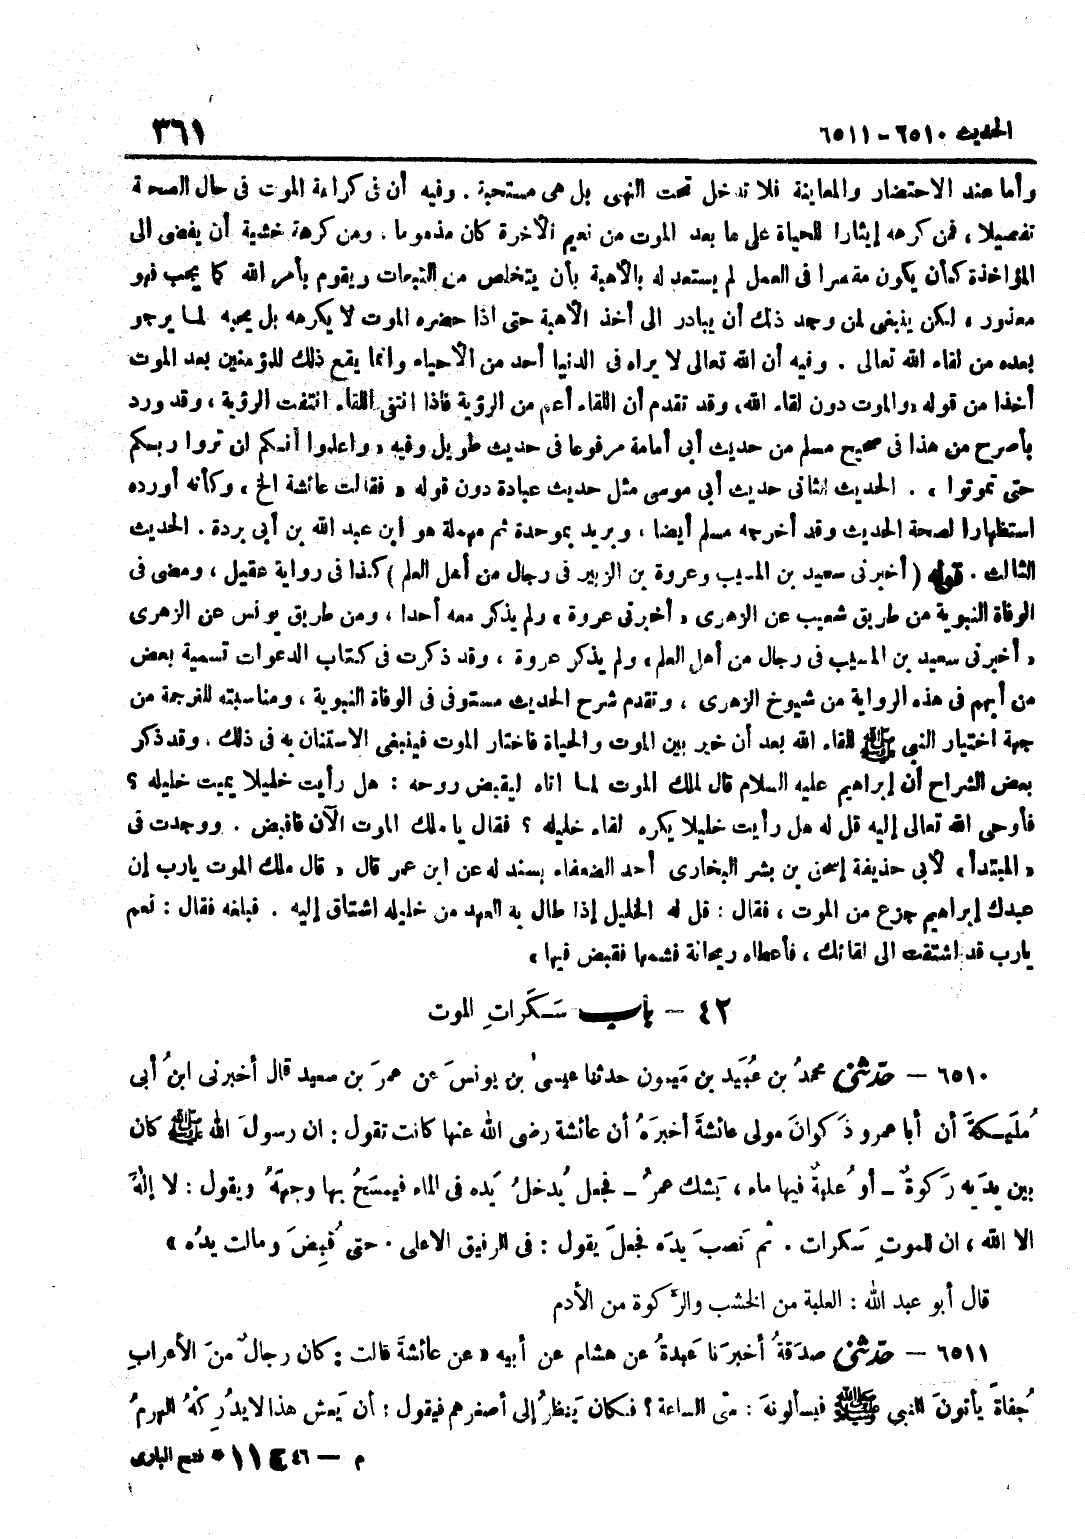 الحديث ٦٥١٠ - ٦٥١١ ٣٦١
وأما عند الاحتضار والمعاينة فلا تدخل تحت النهى بل هى مستحبة . وفيه أن فى كراهة الموت فى حال الصحة
تفصيلا ، فمن كرهه إيثارا للحياة على ما بعد الموت من نعيم الآخرة كان مذموما ، ومن كرهه خشية أن يفضى الى
المؤاخذة كأن يكون مقصرا فى العمل لم يستعد له بالأهبة بأن يتخلص من التبعات ويقوم بأمر الله كما يجب فهو
معذور ، لكن ينبغى لمن وجد ذلك أن يبادر الى أخذ الأهبة حتى اذا حضره الموت لا يكرهه بل يحبه لما يرجو
بعده من لقاء الله تعالى . وفيه أن الله تعالى لا يراه فى الدنيا أحد من الأحياء وانما يقع ذلك للمؤمنين بعد الموت
أخذا من قوله « والموت دون لقاء الله » وقد تقدم أن اللقاء أعم من الرؤية فاذا انتفى اللقاء انتفت الرؤية ، وقد ورد
بأصرح من هذا فى صحيح مسلم من حديث أبى أمامة مرفوعا فى حديث طويل وفيه « واعلموا أنكم لن تروا ربكم
حتى تموتوا » . الحديث الثانى حديث أبى موسى مثل حديث عبادة دون قوله « فقالت عائشة الخ » وكأنه أورده
استظهارا لصحة الحديث وقد أخرجه مسلم أيضا ، وبريد بموحدة ثم مهملة هو ابن عبد الله بن أبى بردة . الحديث
الثالث . قوله ( أخبرنى سعيد بن المسيب وعروة بن الزبير فى رجال من أهل العلم ) كذا فى رواية عقيل ، ومضى فى
الوفاة النبوية من طريق شعيب عن الزهرى « أخبرنى عروة » ولم يذكر معه أحدا ، ومن طريق يونس عن الزهرى
« أخبرنى سعيد بن المسيب فى رجال من أهل العلم » ولم يذكر عروة ، وقد ذكرت فى كتاب الدعوات تسمية بعض
من أبهم فى هذه الرواية من شيوخ الزهرى ، وتقدم شرح الحديث مستوفى فى الوفاة النبوية ، ومناسبته للترجمة من
جهة اختيار النبى ﷺ للقاء الله بعد أن خير بين الموت والحياة فاختار الموت فينبغى الاستنان به فى ذلك . وقد ذكر
بعض الشراح أن إبراهيم عليه السلام قال لملك الموت لما اتاه ليقبض روحه : هل رأيت خليلا يميت خليله ؟
فأوحى الله تعالى إليه قل له هل رأيت خليلا يكره لقاء خليله ؟ فقال يا ملك الموت الآن فاقبض . ووجدت فى
« المبتدأ » لأبى حذيفة إسحق بن بشر البخارى أحد الضعفاء بسند له عن ابن عمر قال « قال ملك الموت يارب إن
عبدك إبراهيم جزع من الموت ، فقال : قل له الخليل إذا طال به العهد من خليله اشتاق إليه . فبلغه فقال : نعم
يارب قد اشتقت الى لقائك ، فأعطاه ريحانة فشمها فقبض فيها »
٤٢ - باب سَكَراتِ الموت
٦٥١٠ - حدّثنى محمدُ بن عُبَيد بن مَيمون حدثنا عيسى بن يونسَ عن عمرَ بن سعيد قال أخبرنى ابنُ أبى
مُلَيكةَ أن أبا عمرو ذَكوانَ مولى عائشةَ أخبرَهُ أن عائشة رضى الله عنها كانت تقول : ان رسولَ الله ﷺ كان
بين يدَيه رَكوةٌ - أو عُلبةٌ فيها ماء ، يَشك عمرُ - فجعل يُدخلُ يَده فى الماء فيمسَحُ بها وجهَهُ ويقول : لا إلهَ
الا الله ، ان للموتِ سَكرات . ثم نَصبَ يدَه فجعلَ يقول : فى الرفيق الاعلى . حتى قُبِضَ ومالت يدُه »
قال أبو عبد الله : العلبة من الخشب والرَّكوة من الأدم
٦٥١١ - حدّثنى صدَقةُ أخبرَنا عَبدةُ عن هشام عن أبيه « عن عائشةَ قالت : كان رجالٌ منَ الأعرابِ
جُفاةً يأتونَ النبي ﷺ فيسألونهَ : متى الساعة ؟ فكان يَنظرُ إلى أصغرهم فيقول : أن يَعش هذا لا يدُرِكْهُ الهرمُ
م - ٤٦ ج ١١ * فتح البارى